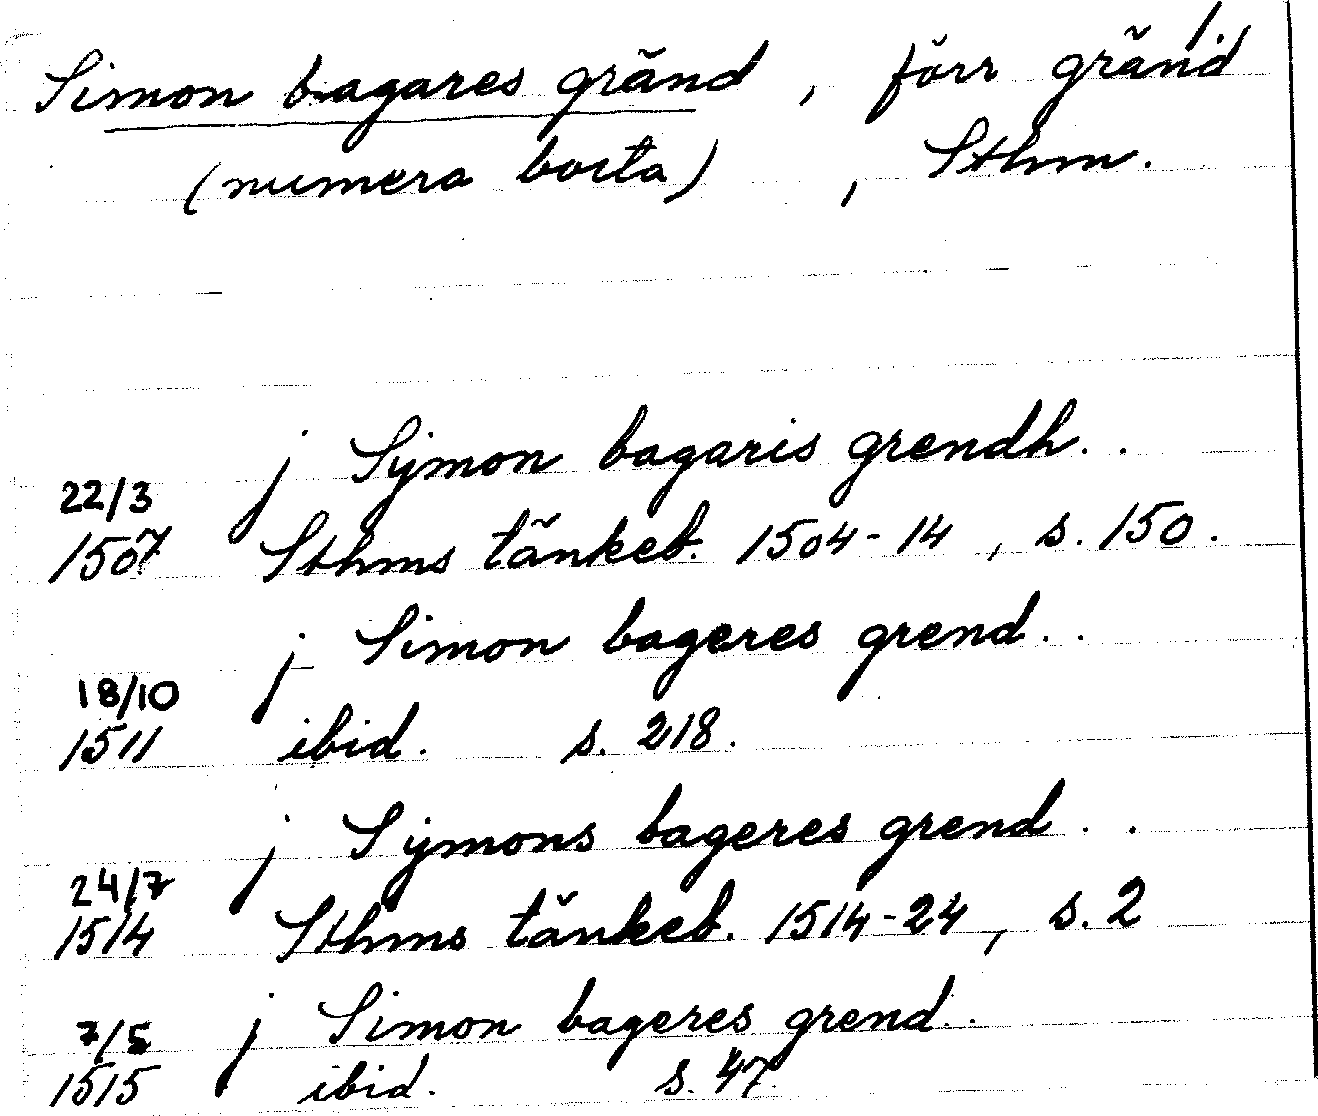 1.
Simon bagares gränd, förr gränd
(numera borta), Sthm.
j Sijmon bagaris grendh..
22/3
1507 Sthms tänkeb. 1504-14, s. 150.
j Simon bageres grend..
18/10
1511 ibid. s. 218.
j Sijmons bageres grend..
24/7
1514 Sthms tänkeb. 1514-24, s. 2
7/5 j Simon bageres grend..
1515 ibid. s. 47.